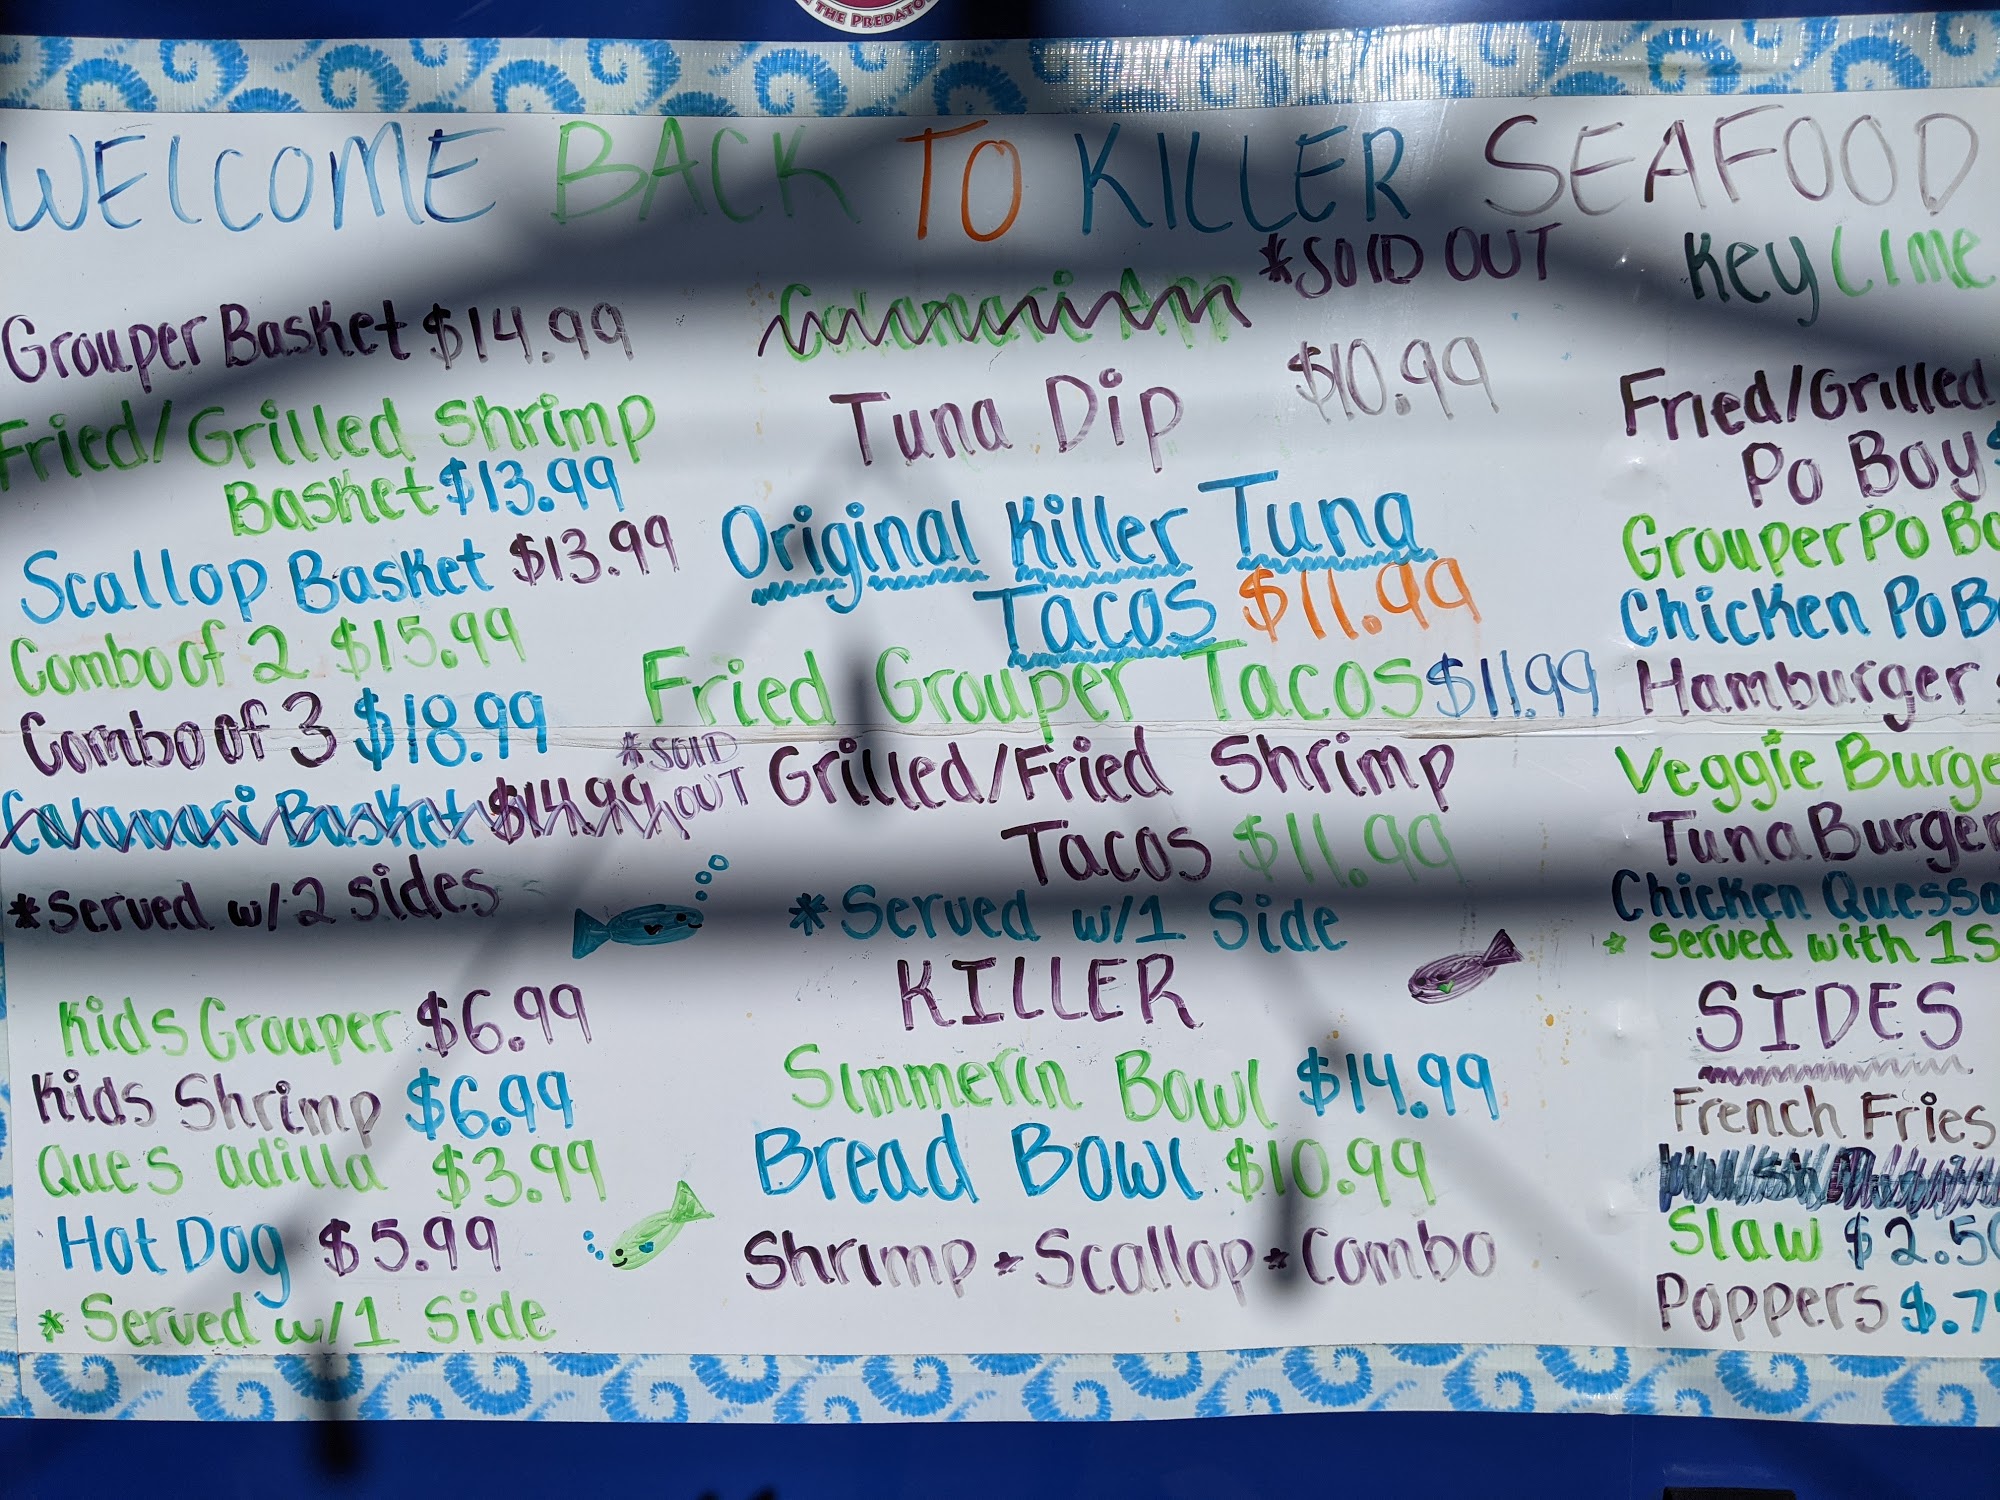 THE PREDATO
WELCOME BACK TO KILLER SEAFOOD
Grouper Basket $14.99
Fried/Grilled Shrimp
Basket $13.99
Scallop Basket $13.99
Combo of 2 $15.99
Combo of 3 $18.99
Calamari Basket $14.99 *SOLD
OUT
*Served w/2 sides
Kids Grouper $6.99
Kids Shrimp $6.99
Quesadilla $3.99
Hot Dog $5.99
*Served w/1 Side
Calamari App *SOLD OUT
Tuna Dip $10.99
Original Killer Tuna
Tacos $11.99
Fried Grouper Tacos $11.99
Grilled/Fried Shrimp
Tacos $11.99
*Served w/1 Side
KILLER
Simmerin Bowl $14.99
Bread Bowl $10.99
Shrimp * Scallop * Combo
Key Lime
Fried/Grilled
Po Boy $
Grouper Po Bo
Chicken Po B
Hamburger
Veggie Burge
Tuna Burger
Chicken Quessa
* Served with 1 S
SIDES
French Fries
Slaw $2.50
Poppers $.7